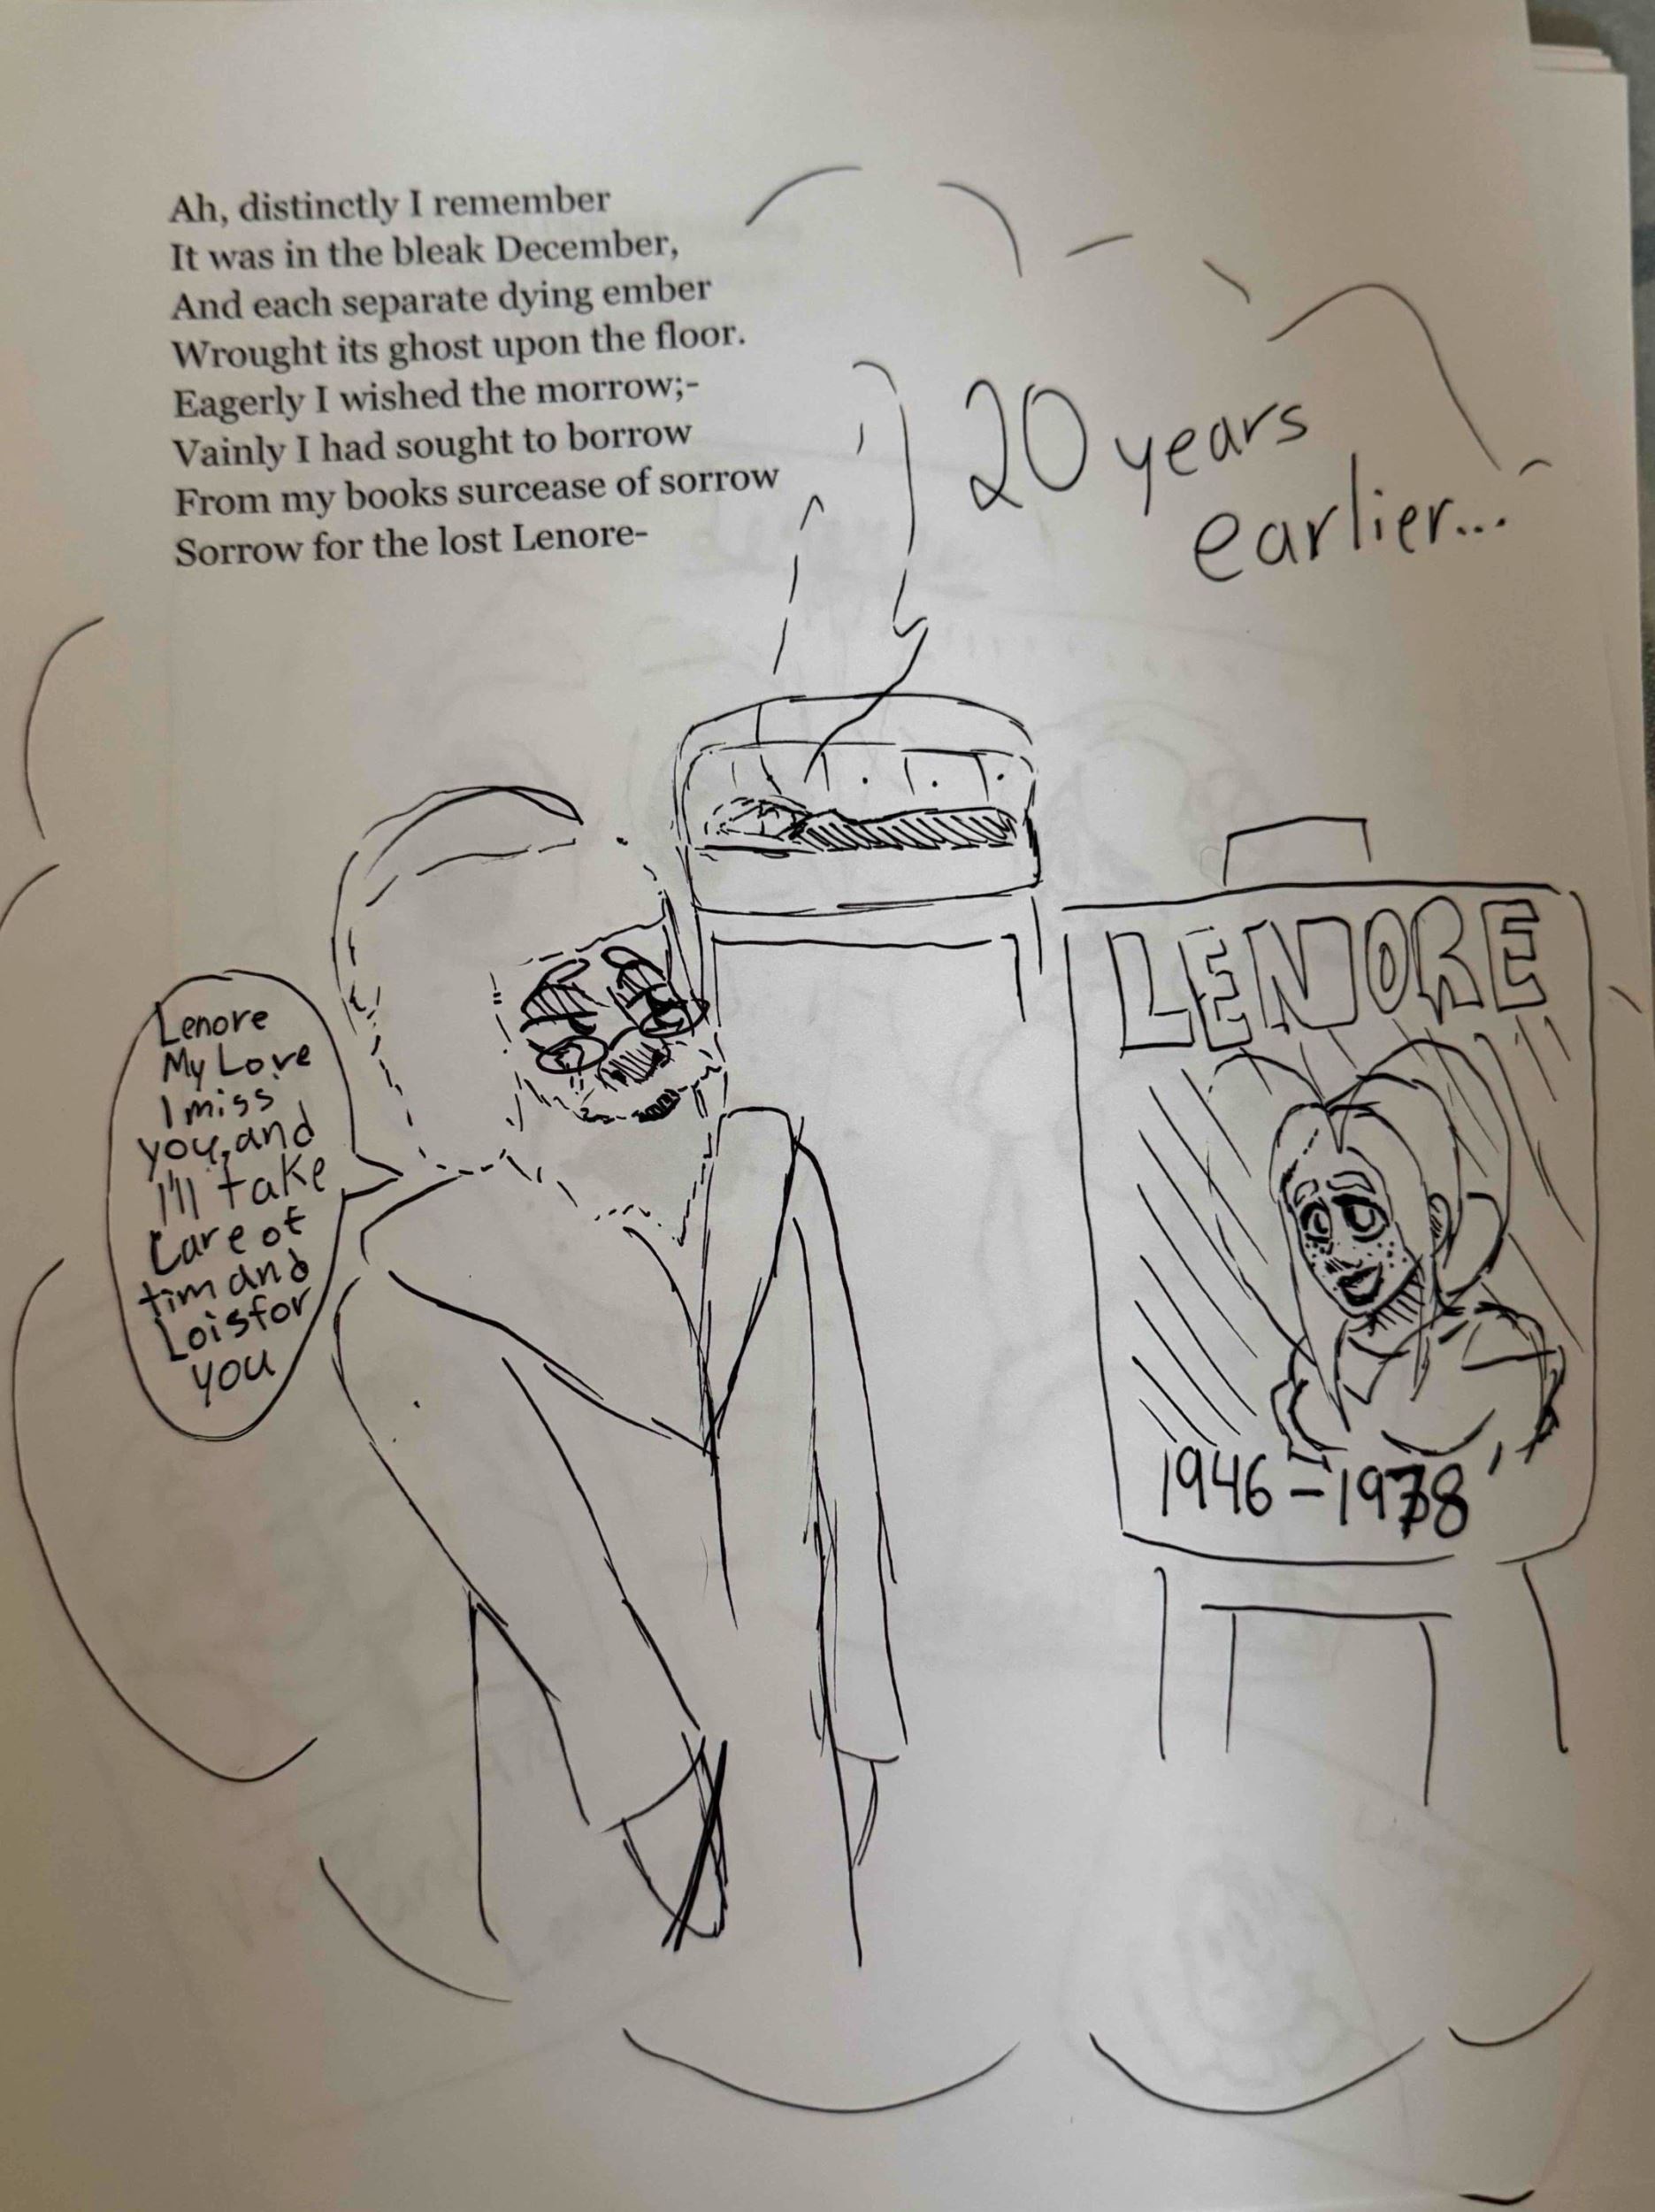 Ah, distinctly I remember
It was in the bleak December,
And each separate dying ember
Wrought its ghost upon the floor.
Eagerly I wished the morrow;-
Vainly I had sought to borrow
From my books surcease of sorrow
Sorrow for the lost Lenore-
20 years
earlier...
Lenore
My Love
I miss
you, and
I'll take
Care of
tim and
Lois for
you
LENORE
1946-1978